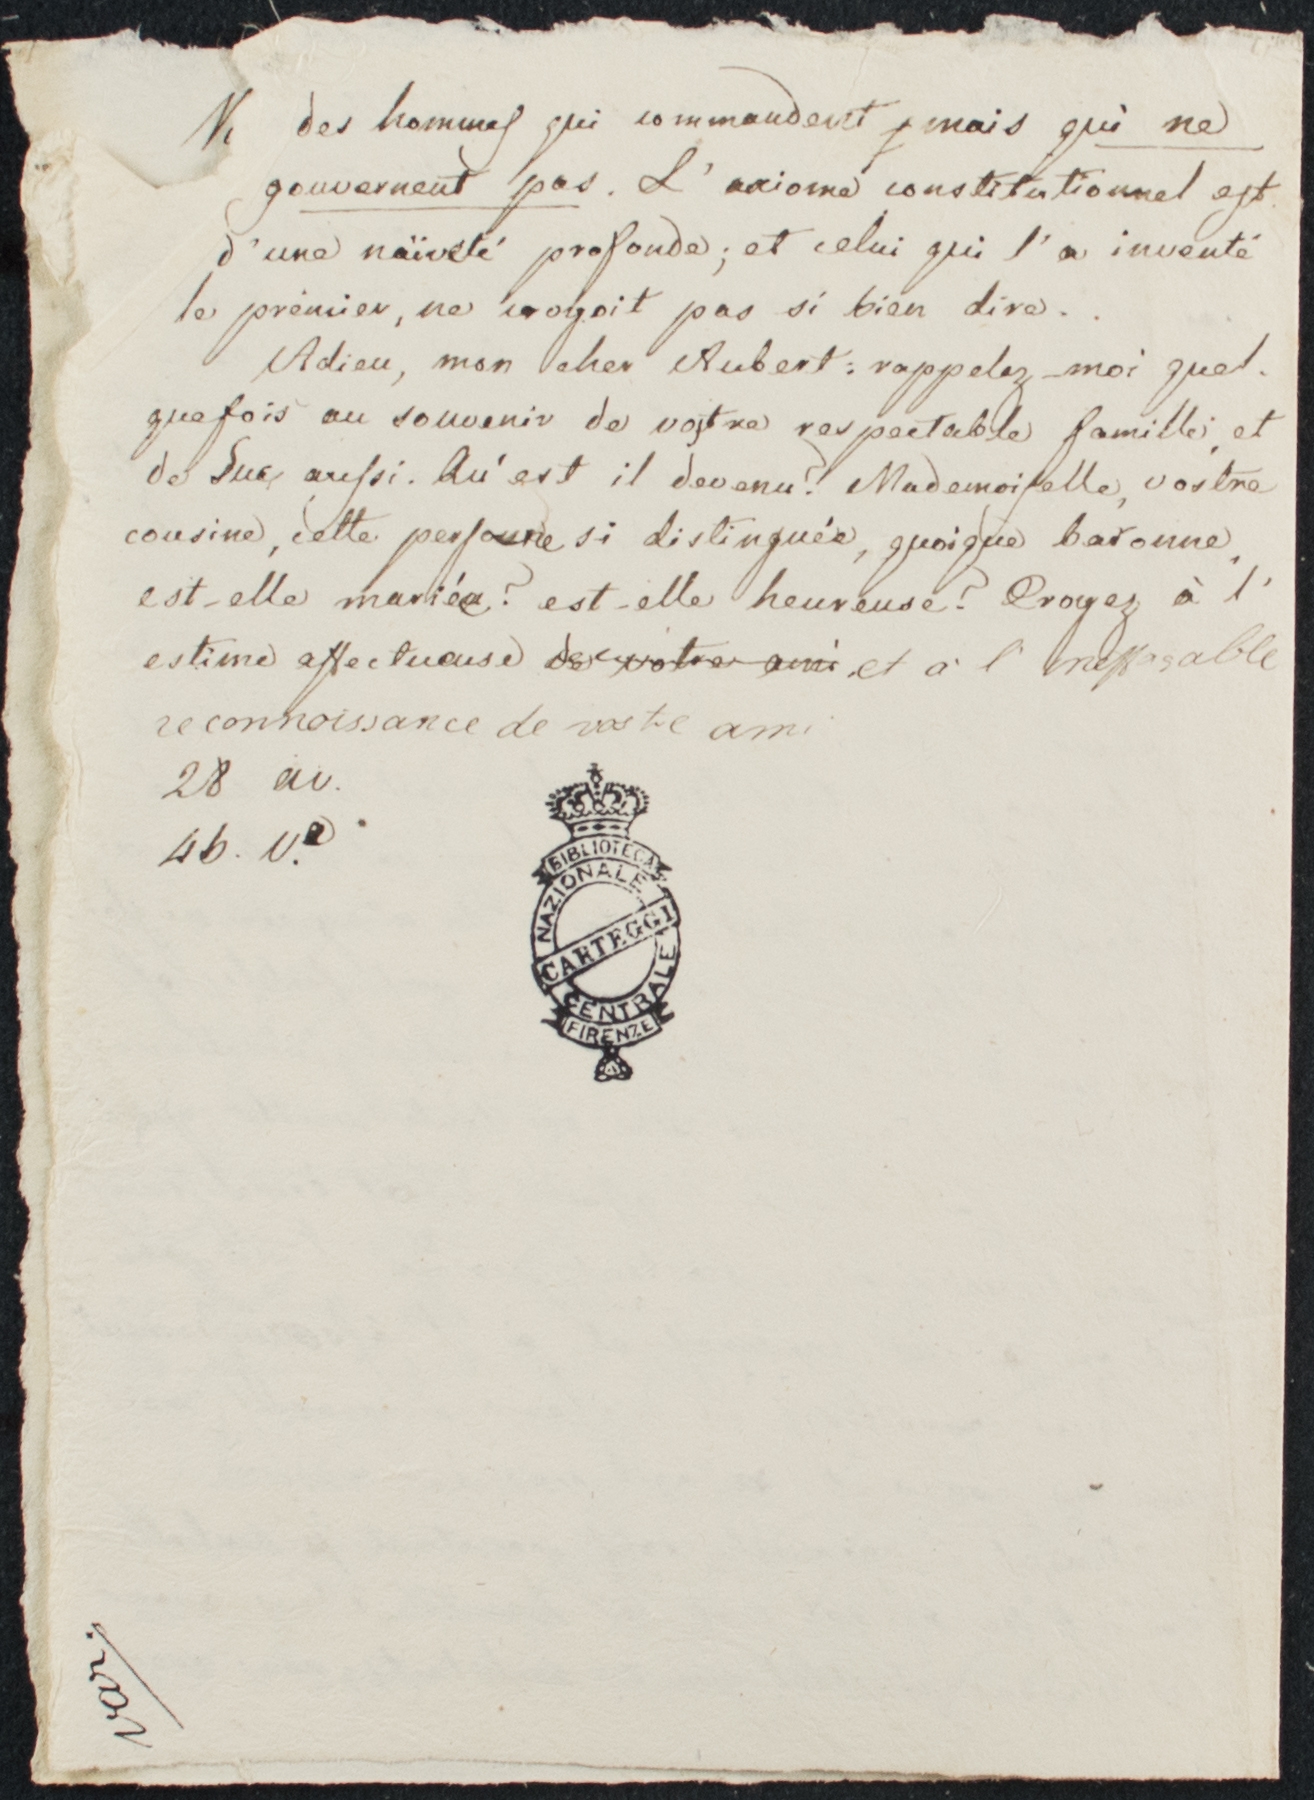 des hommes qui commandent, mais qui ne
gouvernent pas. L'axiome constitutionnel est
d'une naïveté profonde; et celui qui l'a inventé
le prémier, ne croyoit pas si bien dire.
Adieu, mon cher Aubert: rappelez-moi quel-
quefois au souvenir de vostre respectable famille, et
de Luc aussi. Qu'est il devenu? Mademoiselle, vostre
cousine, cette personne si distinguée, quoique baronne,
est-elle mariée? est-elle heureuse? Croyez à l'
estime affectueuse de votre ami, et à l'ineffaçable
reconnoissance de vostre ami
28 av.
46. V.e
BIBLIOTECA
NAZIONALE
CARTEGGI
CENTRALE
FIRENZE
Vari